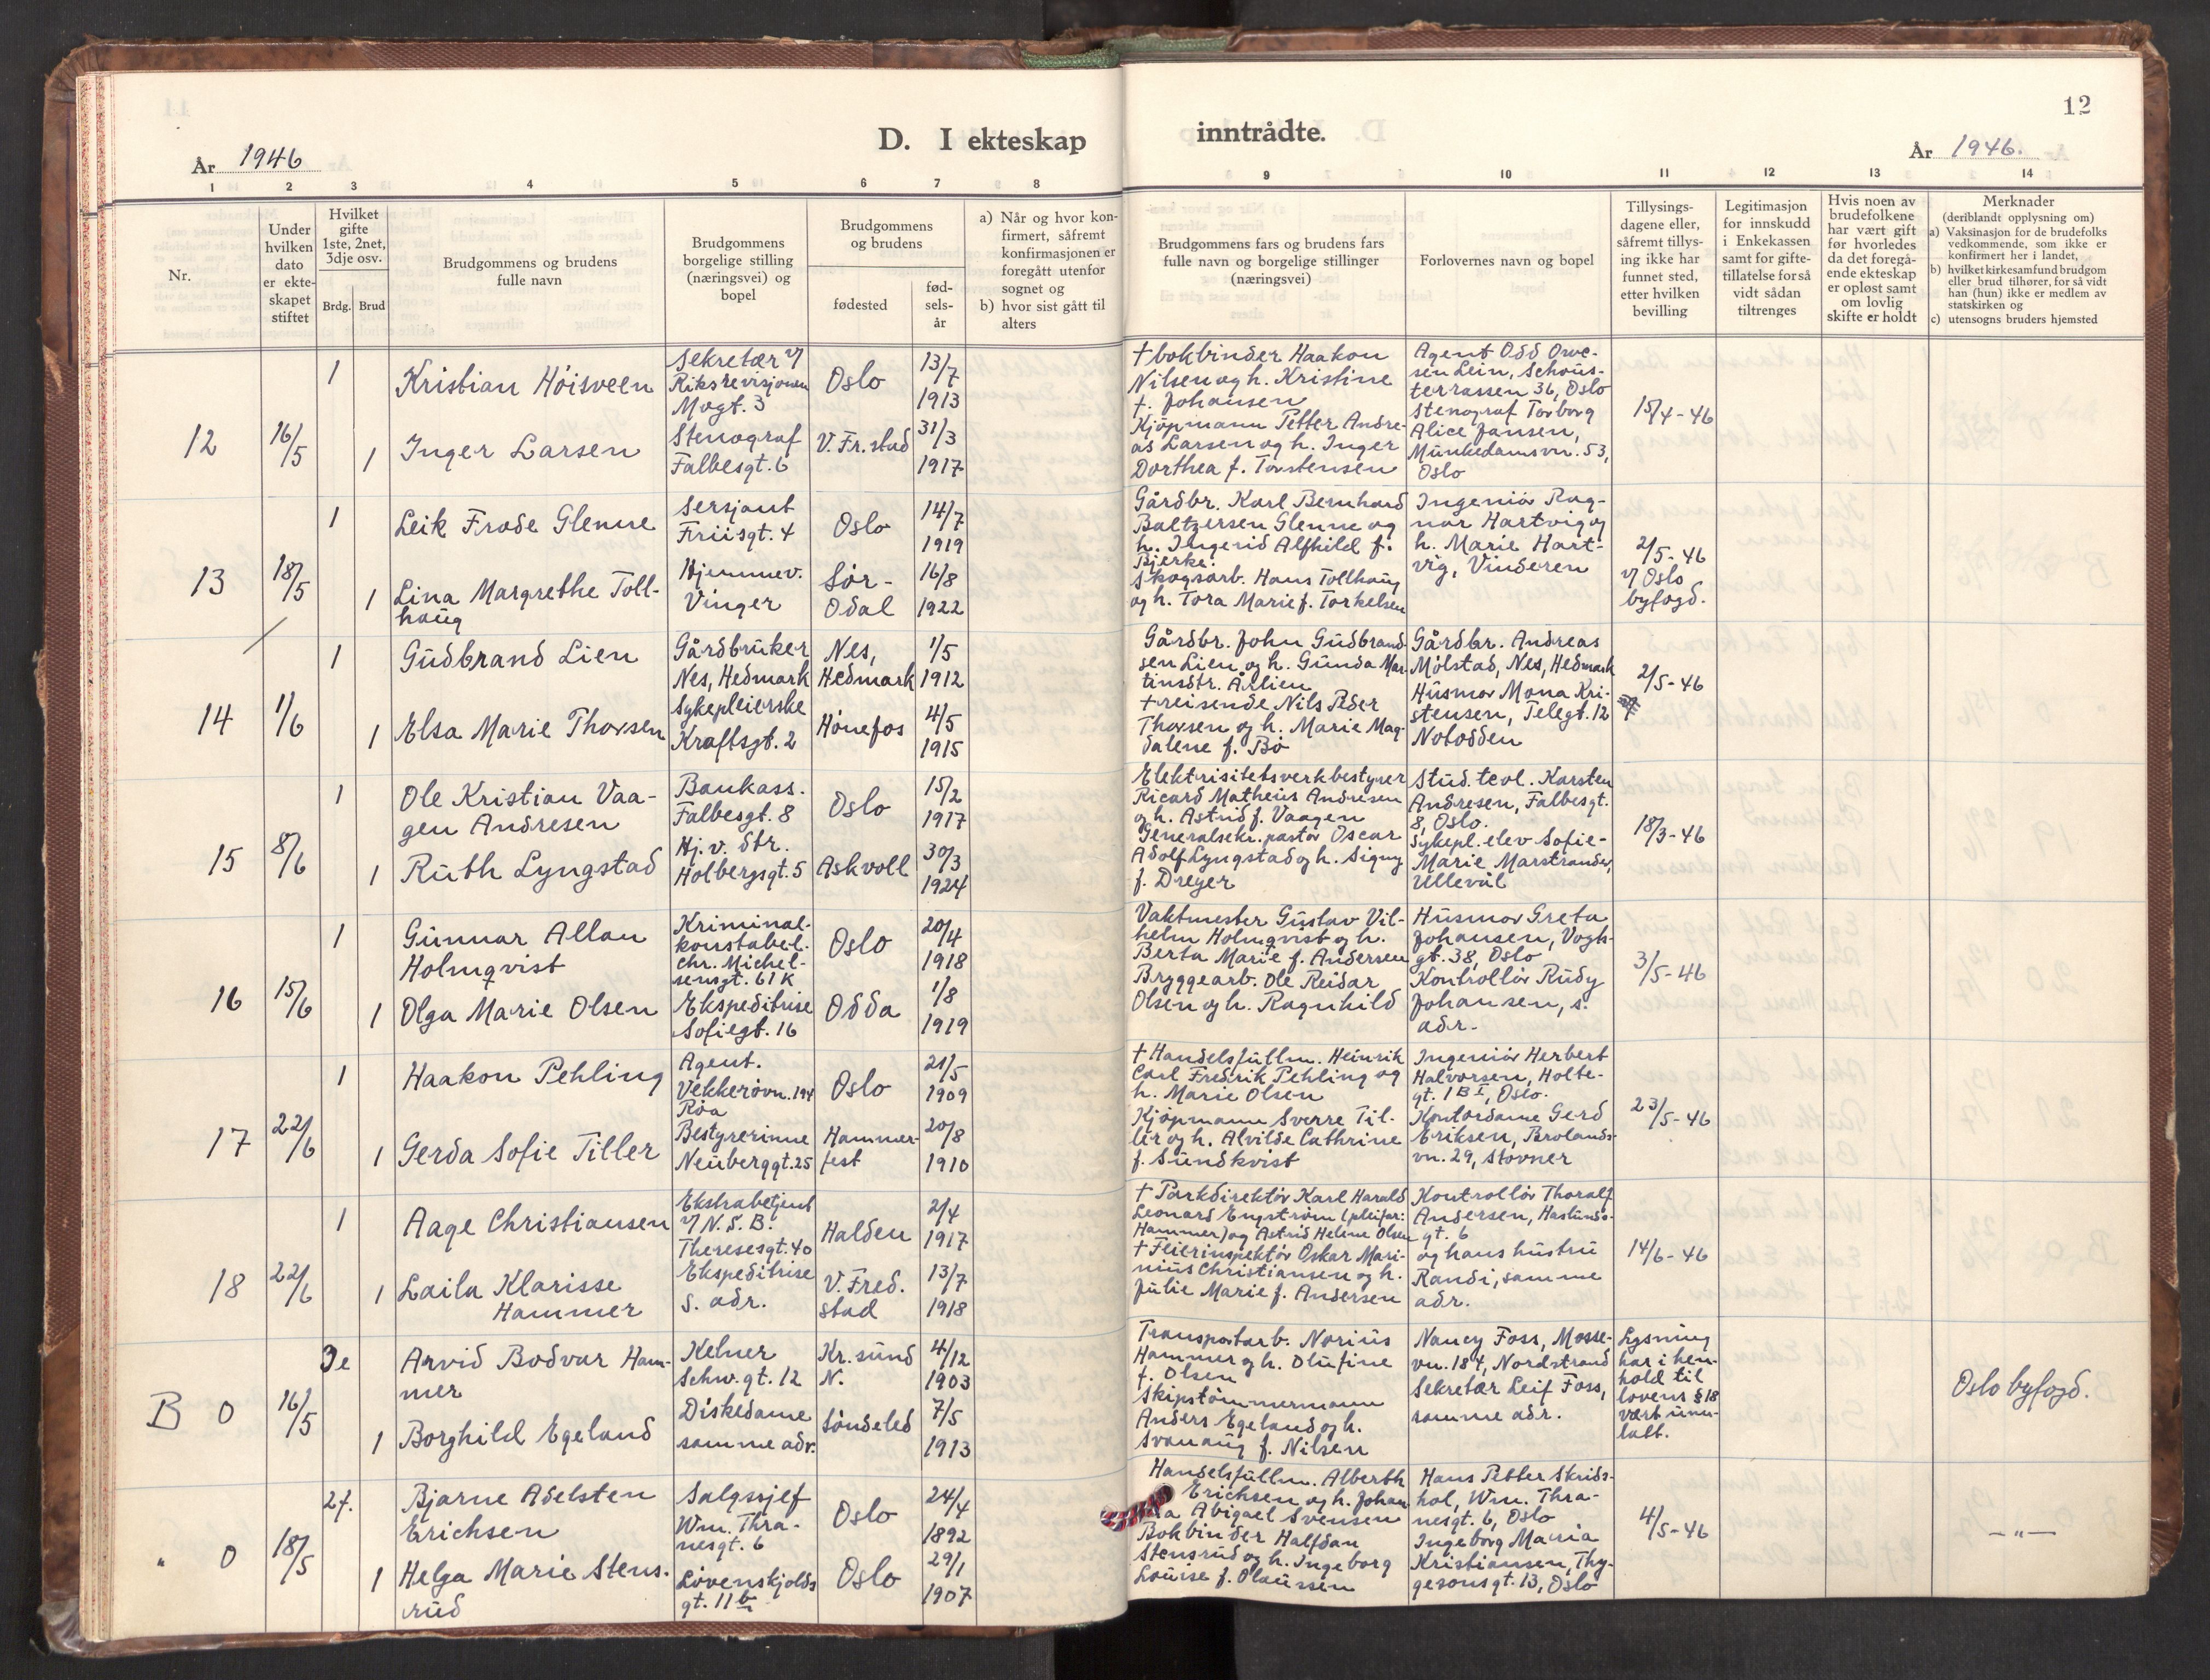 12
D. I ekteskap inntrådte.
År 1946
År 1946.
1 2 3 4 5 6 7 8 9 10 11 12 13 14
Nr.
Under
hvilken
dato
er ekte-
skapet
stiftet
Hvilket
gifte
1ste, 2net,
3dje osv.
Brdg. Brud
Brudgommens og brudens
fulle navn
Brudgommens
borgelige stilling
(næringsvei) og
bopel
Brudgommens
og brudens
fødested
fød-
sels-
år
a) Når og hvor kon-
firmert, såfremt
konfirmasjonen er
foregått utenfor
sognet og
b) hvor sist gått til
alters
Brudgommens fars og brudens fars
fulle navn og borgelige stillinger
(næringsvei)
Forlovernes navn og bopel
Tillysings-
dagene eller,
såfremt tillys-
ing ikke har
funnet sted,
etter hvilken
bevilling
Legitimasjon
for innskudd
i Enkekassen
samt for gifte-
tillatelse for så
vidt sådan
tiltrenges
Hvis noen av
brudefolkene
har vært gift
før hvorledes
da det foregå-
ende ekteskap
er opløst samt
om lovlig
skifte er holdt
Merknader
(deriblandt opplysning om)
a) Vaksinasjon for de brudefolks
vedkommende, som ikke er
konfirmert her i landet,
b) hvilket kirkesamfund brudgom
eller brud tilhører, for så vidt
han (hun) ikke er medlem av
statskirken og
c) utensogns bruders hjemsted
12
16/5
1
Kristian Höisveen
Sekretær v/
Riksrevisjonen
Mogt. 3
Oslo
13/7
1913
1
Inger Larsen
Stenograf
Falbesgt. 6
V. Fr. stad
31/3
1917
† bokbinder Haakon
Nilsen og h. Kristine
f. Johansen
Kjöpmann Petter Andre-
as Larsen og h. Inger
Dorthea f. Torstensen
Agent Odd Orve-
sen Lein, Schous-
terrassen 36, Oslo
Stenograf Torborg
Alice Jansen,
Munkedamsvn. 53,
Oslo
15/4-46
13
18/5
1
Leik Frode Glenne
Sersjant
Friisgt. 4
Oslo
14/7
1919
1
Lina Margrethe Toll-
haug
Hjemmev.
Vinger
Sör-
Odal
16/8
1922
Gårdbr. Karl Bernhard
Baltzersen Glenne og
h. Ingerid Alfhild f.
Bjerke.
Skogsarb. Hans Tollhaug
og h. Tora Marie f. Torkelsen
Ingeniör Rag-
nar Hartvig og
h. Marie Hart-
vig, Vinderen
2/5-46
v/ Oslo
byfogd.
14
1/6
1
Gudbrand Lien
Gårdbruker
Nes, Hedmark
Nes,
Hedmark
1/5
1912
1
Elsa Marie Thorsen
Sykepleierske
Kraftsgt. 2
Hönefos
4/5
1915
Gårdbr. John Gudbrand-
sen Lien og h. Gunda Mar-
tinsdtr. Årlien
† reisende Nils Peder
Thorsen og h. Marie Mag-
dalene f. Bö
Gårdbr. Andreas
Mölstad, Nes, Hedmark
Husmor Mona Kri-
stensen, Telegt. 12
Notodden
2/5-46
15
8/6
1
Ole Kristian Vaa-
gen Andresen
Bankass.
Falbesgt. 8
Oslo
15/2
1917
1
Ruth Lyngstad
Hj. v. dtr.
Holbergsgt. 5
Askvoll
30/3
1924
Elektrisitetsverkbestyrer
Ricard Matheus Andresen
og h. Astrid f. Vaagen
Generalsekr. pastor Oscar
Adolf Lyngstad og h. Signy
f. Dreyer
Stud. teol. Karsten
Andresen, Falbesgt.
8, Oslo.
Sykepl. elev Sofie-
Marie Marstrander,
Ullevål
18/3-46
16
15/6
1
Gunnar Allan
Holmqvist
Kriminal-
konstabel.
Chr. Michel-
sensgt. 61 K
Oslo
20/4
1918
1
Olga Marie Olsen
Ekspeditrise
Sofiegt. 16
Odda
1/8
1919
Vaktmester Gustav Vil-
helm Holmqvist og h.
Berta Marie f. Andersen
Bryggearb. Ole Reidar
Olsen og h. Ragnhild
Husmor Greta
Johansen, Vogts-
gt. 38, Oslo
Kontrollör Rudy
Johansen, s.
adr.
3/5-46
17
22/6
1
Haakon Pehling
Agent.
Vekkerövn. 194
Röa
Oslo
21/5
1909
1
Gerda Sofie Tiller
Bestyrerinne
Neuberggt. 25
Hammer-
fest
20/8
1910
† Handelsfullm. Heinrik
Carl Fredrik Pehling og
h. Marie Olsen
Kjöpmann Sverre Til-
ler og h. Alvilde Cathrine
f. Sundkvist
Ingeniör Herbert
Halvorsen, Holte-
gt. 1 B I, Oslo.
Kontordame Gerd
Eriksen, Brolands-
vn. 29, Stovner
23/5-46
18
22/6
1
Aage Christiansen
Ekstrabetjent
v/ N. S. B.
Theresesgt. 40
Halden
2/4
1917
1
Laila Klarisse
Hammer
Ekspeditrise
s. adr.
V. Fred.
stad
13/7
1918
† Parkdirektör Karl Harald
Leonard Engström (pleifar:
Hammer) og Astrid Helene Olsen
† Feierinspektör Oskar Mari-
nius Christiansen og h.
Julie Marie f. Andersen
Kontrollör Thoralf
Andersen, Haslunds-
gt. 6
og hans hustru
Randi, samme
adr.
14/6-46
B 0
16/5
3e
Arvid Bodvar Ham-
mer
Kelner
Schw. gt. 12
Kr. sund
N.
4/12
1903
1
Borghild Egeland
Diskedame
samme adr.
Söndeled
7/5
1913
Transportarb. Norius
Hammer og h. Olufine
f. Olsen
Skipstömmermann
Anders Egeland og h.
Svanaug f. Nilsen
Nancy Foss, Mosse-
vn. 184, Nordstrand
Sekretær Leif Foss,
samme adr.
Lysning
har i hen-
hold til
lovens § 18
vært unn-
latt.
Oslo byfogd.
" 0
18/5
2f.
Bjarne Adelsten
Erichsen
Salgssjef
Wm. Thra-
nesgt. 6
Oslo
24/4
1892
1
Helga Marie Stens-
rud
Lövenskjolds
gt. 11 b
Oslo
29/1
1907
Handelsfullm. Alberth
Erichsen og h. Johan
Abigael Svensen
Bokbinder Halfdan
Stensrud og h. Ingeborg
Louise f. Olaussen
Hans Petter Skrids-
hol, Wm. Thra-
nesgt. 6, Oslo
Ingeborg Maria
Kristiansen, Thy-
gesonsgt. 13, Oslo
4/5-46
— " —